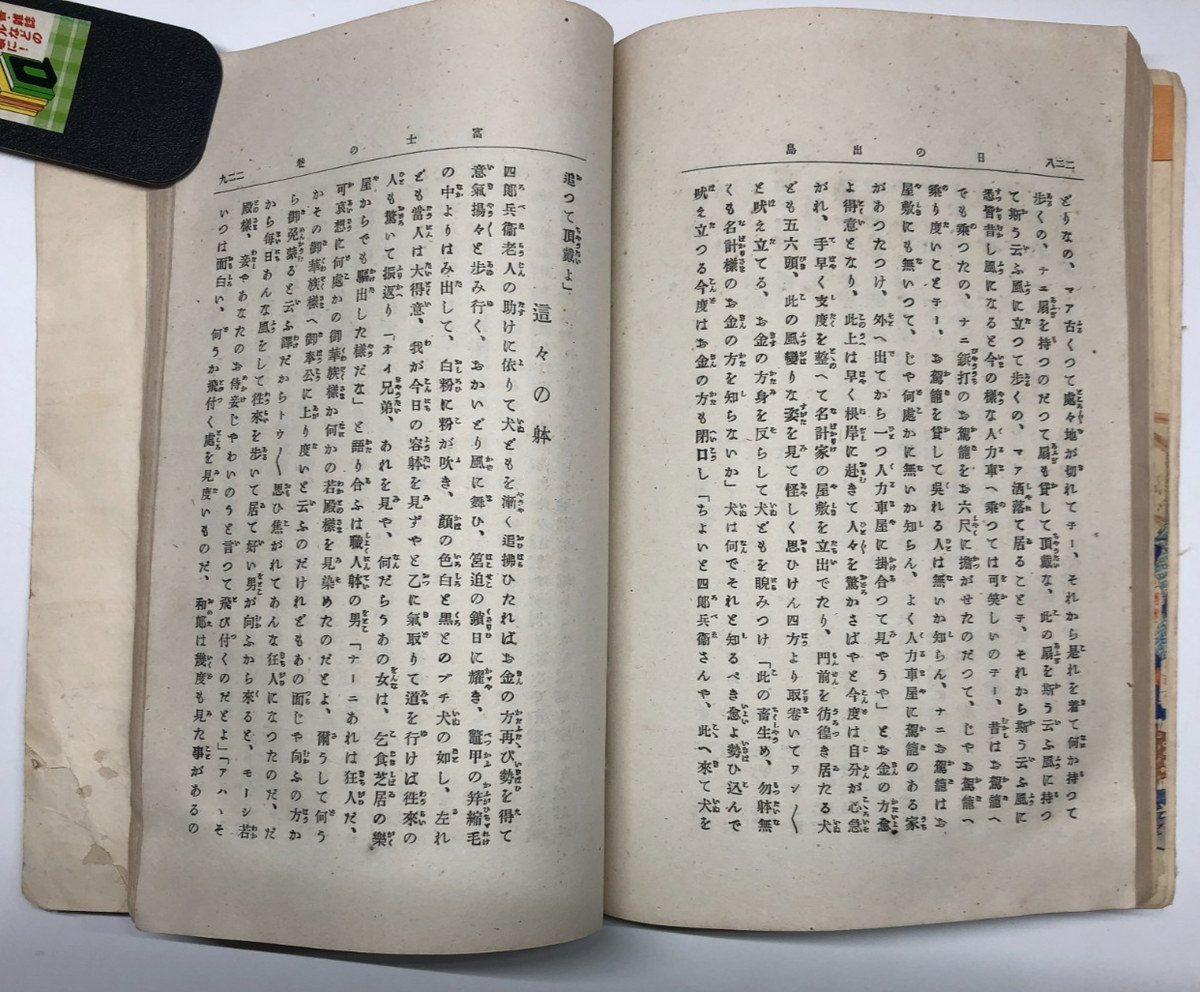 日の出島
二二八
とりなの、マア古くつて處々地が切れてテー、それから是れを着て何か持つて
歩くの、ナニ扇を持つのだつて扇も貸して頂戴な、此の扇を斯う云ふ風に持つ
て斯う云ふ風に立つて歩くの、マア洒落て居ること子、それから斯う云ふ風に
悉皆昔し風になると今の樣な人力車へ乘つては可笑しいのテー、昔はお駕籠へ
でも乘つたの、ナニ鋲打のお駕籠をお六尺に擔がせたのだつて、じやお駕籠へ
乘り度いことテー、お駕籠を貸して呉れる人は無いか知らん、ナニお駕籠はお
屋敷にも無いつて、じや何處かに無いか知らん、よく人力車屋に駕籠のある家
があつたつけ、外へ出てから一つ人力車屋に掛合つて見やうや」とお金の方愈
よ得意となり、此上は早く根岸に赴きて人々を驚かさばやと今度は自分が心急
がれ、手早く支度を整へて名計家の屋敷を立出でたり、門前を彷徨き居たる犬
ども五六頭、此の風變りな姿を見て怪しく思ひけん四方より取卷いてワン〱
と吠え立てる、お金の方身を反らして犬どもを睨みつけ「此の畜生め、勿躰無
くも名計樣のお金の方を知らないか」犬は何でそれと知るべき愈よ勢ひ込んで
吠え立つる今度はお金の方も閉口し「ちよいと四郎兵衞さんや、此へ來て犬を
富士の卷
二二九
追つて頂戴よ」
這々の躰
四郎兵衞老人の助けに依りて犬どもを漸く追拂ひたればお金の方再び勢を得て
意氣揚々と歩み行く、おかいどり風に舞ひ、筥迫の鎖日に耀き、鼈甲の笄縮毛
の中よりはみ出して、白粉に粉が吹き、顏の色白と黒とのブチ犬の如し、左れ
ども當人は大得意、我が今日の容躰を見ずやと乙に氣取りて道を行けば徃來の
人も驚いて振返り「オイ兄弟、あれを見や、何だらうあの女は、乞食芝居の樂
屋からでも驅出した樣だな」と語り合ふは職人躰の男「ナーニあれは狂人だ、
可哀想に何處かの御華族樣か何かの若殿樣を見染めたのだとよ、爾うして何う
かその御華族樣へ御奉公に上り度いと云ふのだけれどもあの面じや向ふの方か
ら御免蒙ると云ふ譯だからトウ〱思ひ焦がれてあんな狂人になつたのだ、だ
から毎日あんな風をして徃來を歩いて居て好い男が向ふから來ると、モーシ若
殿樣、妾やあなたのお侍妾じやわいのうと言つて飛び付くのだとよ」「アハヽそ
いつは面白い、何うか飛付く處を見度いものだ、和郎は幾度も見た事があるの